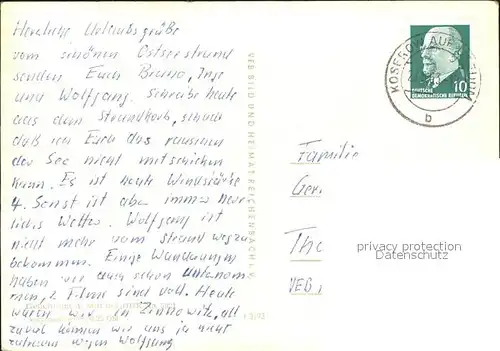 Herzliche Urlaubsgrüße
vom schönen Ostseestrand
senden Euch Bruno, Inge
und Wolfgang. Schreibe heute
aus dem Strandkorb, schade
daß ich Euch das rauschen
der See nicht mitschicken
kann. Es ist heute Windstärke
4. Sonst ist aber immer herr
liches Wetter. Wolfgang ist
nicht mehr vom Strand wegzu
bekommen. Einige Wanderungen
haben wir auch schon unternom
men, 2 Filme sind voll. Heute
waren wir in Zinnowitz, all
zuviel können wir uns ja nicht
zutrauen wegen Wolfgang
VEB BILD UND HEIMAT REICHENBACH I. V.
KOSEROW AUF USEDOM
b
DEUTSCHE
DEMOKRATISCHE REPUBLIK
10
Familie
Ger
Tho
VEB
privacy protection
Datenschutz